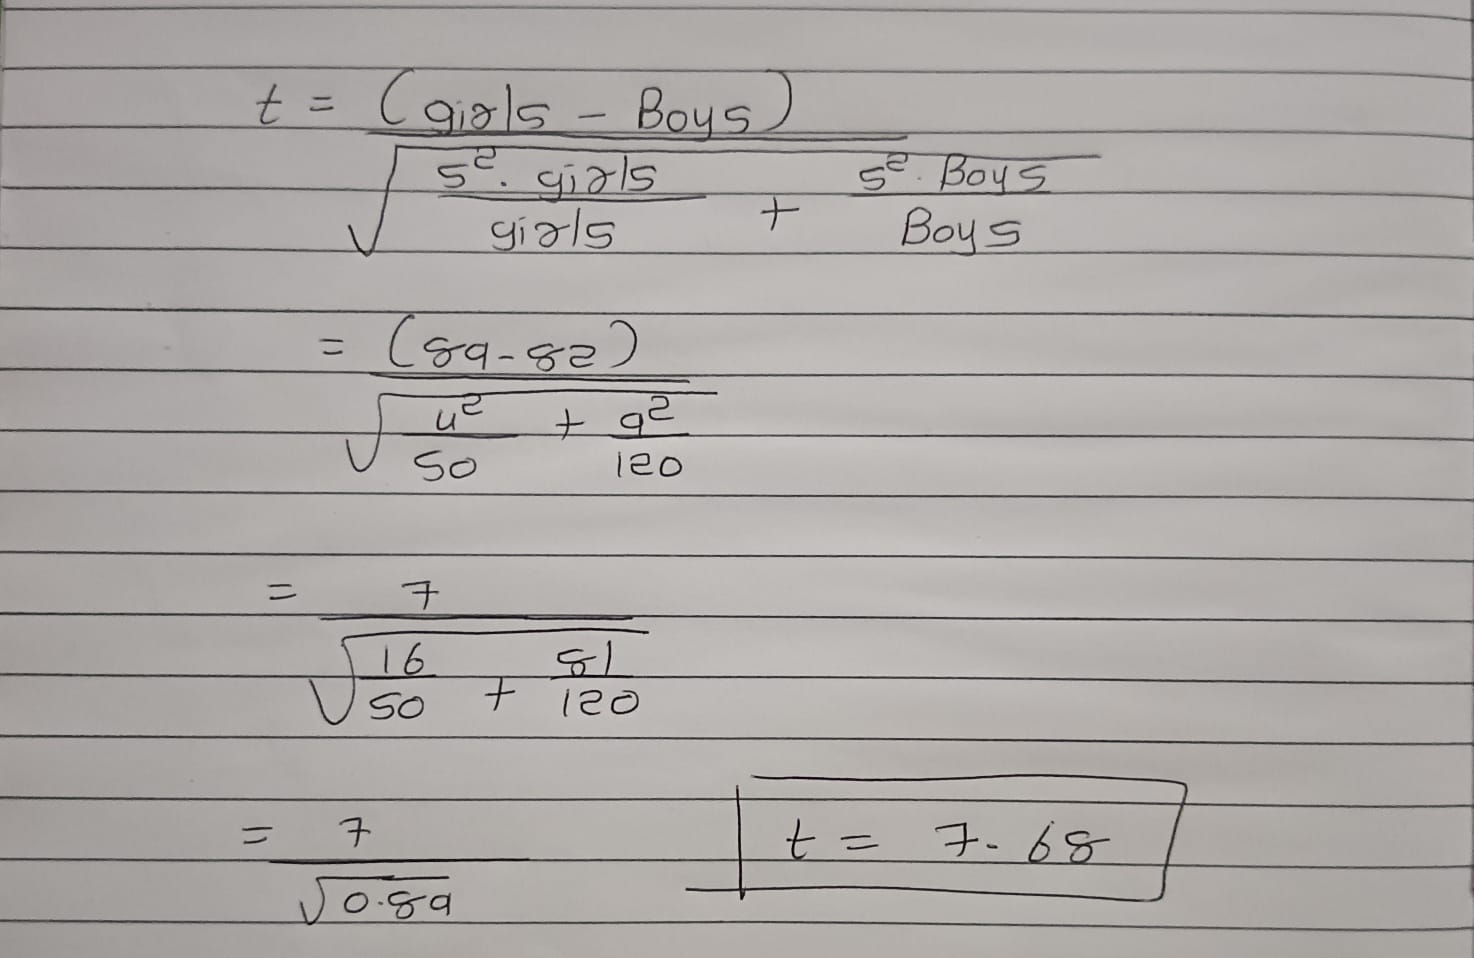 t = (girls - Boys)
√ s². girls / girls + s². Boys / Boys
= (89-82)
√ 4² / 50 + 9² / 120
= 7
√ 16 / 50 + 81 / 120
= 7
√0.89
t = 7.68